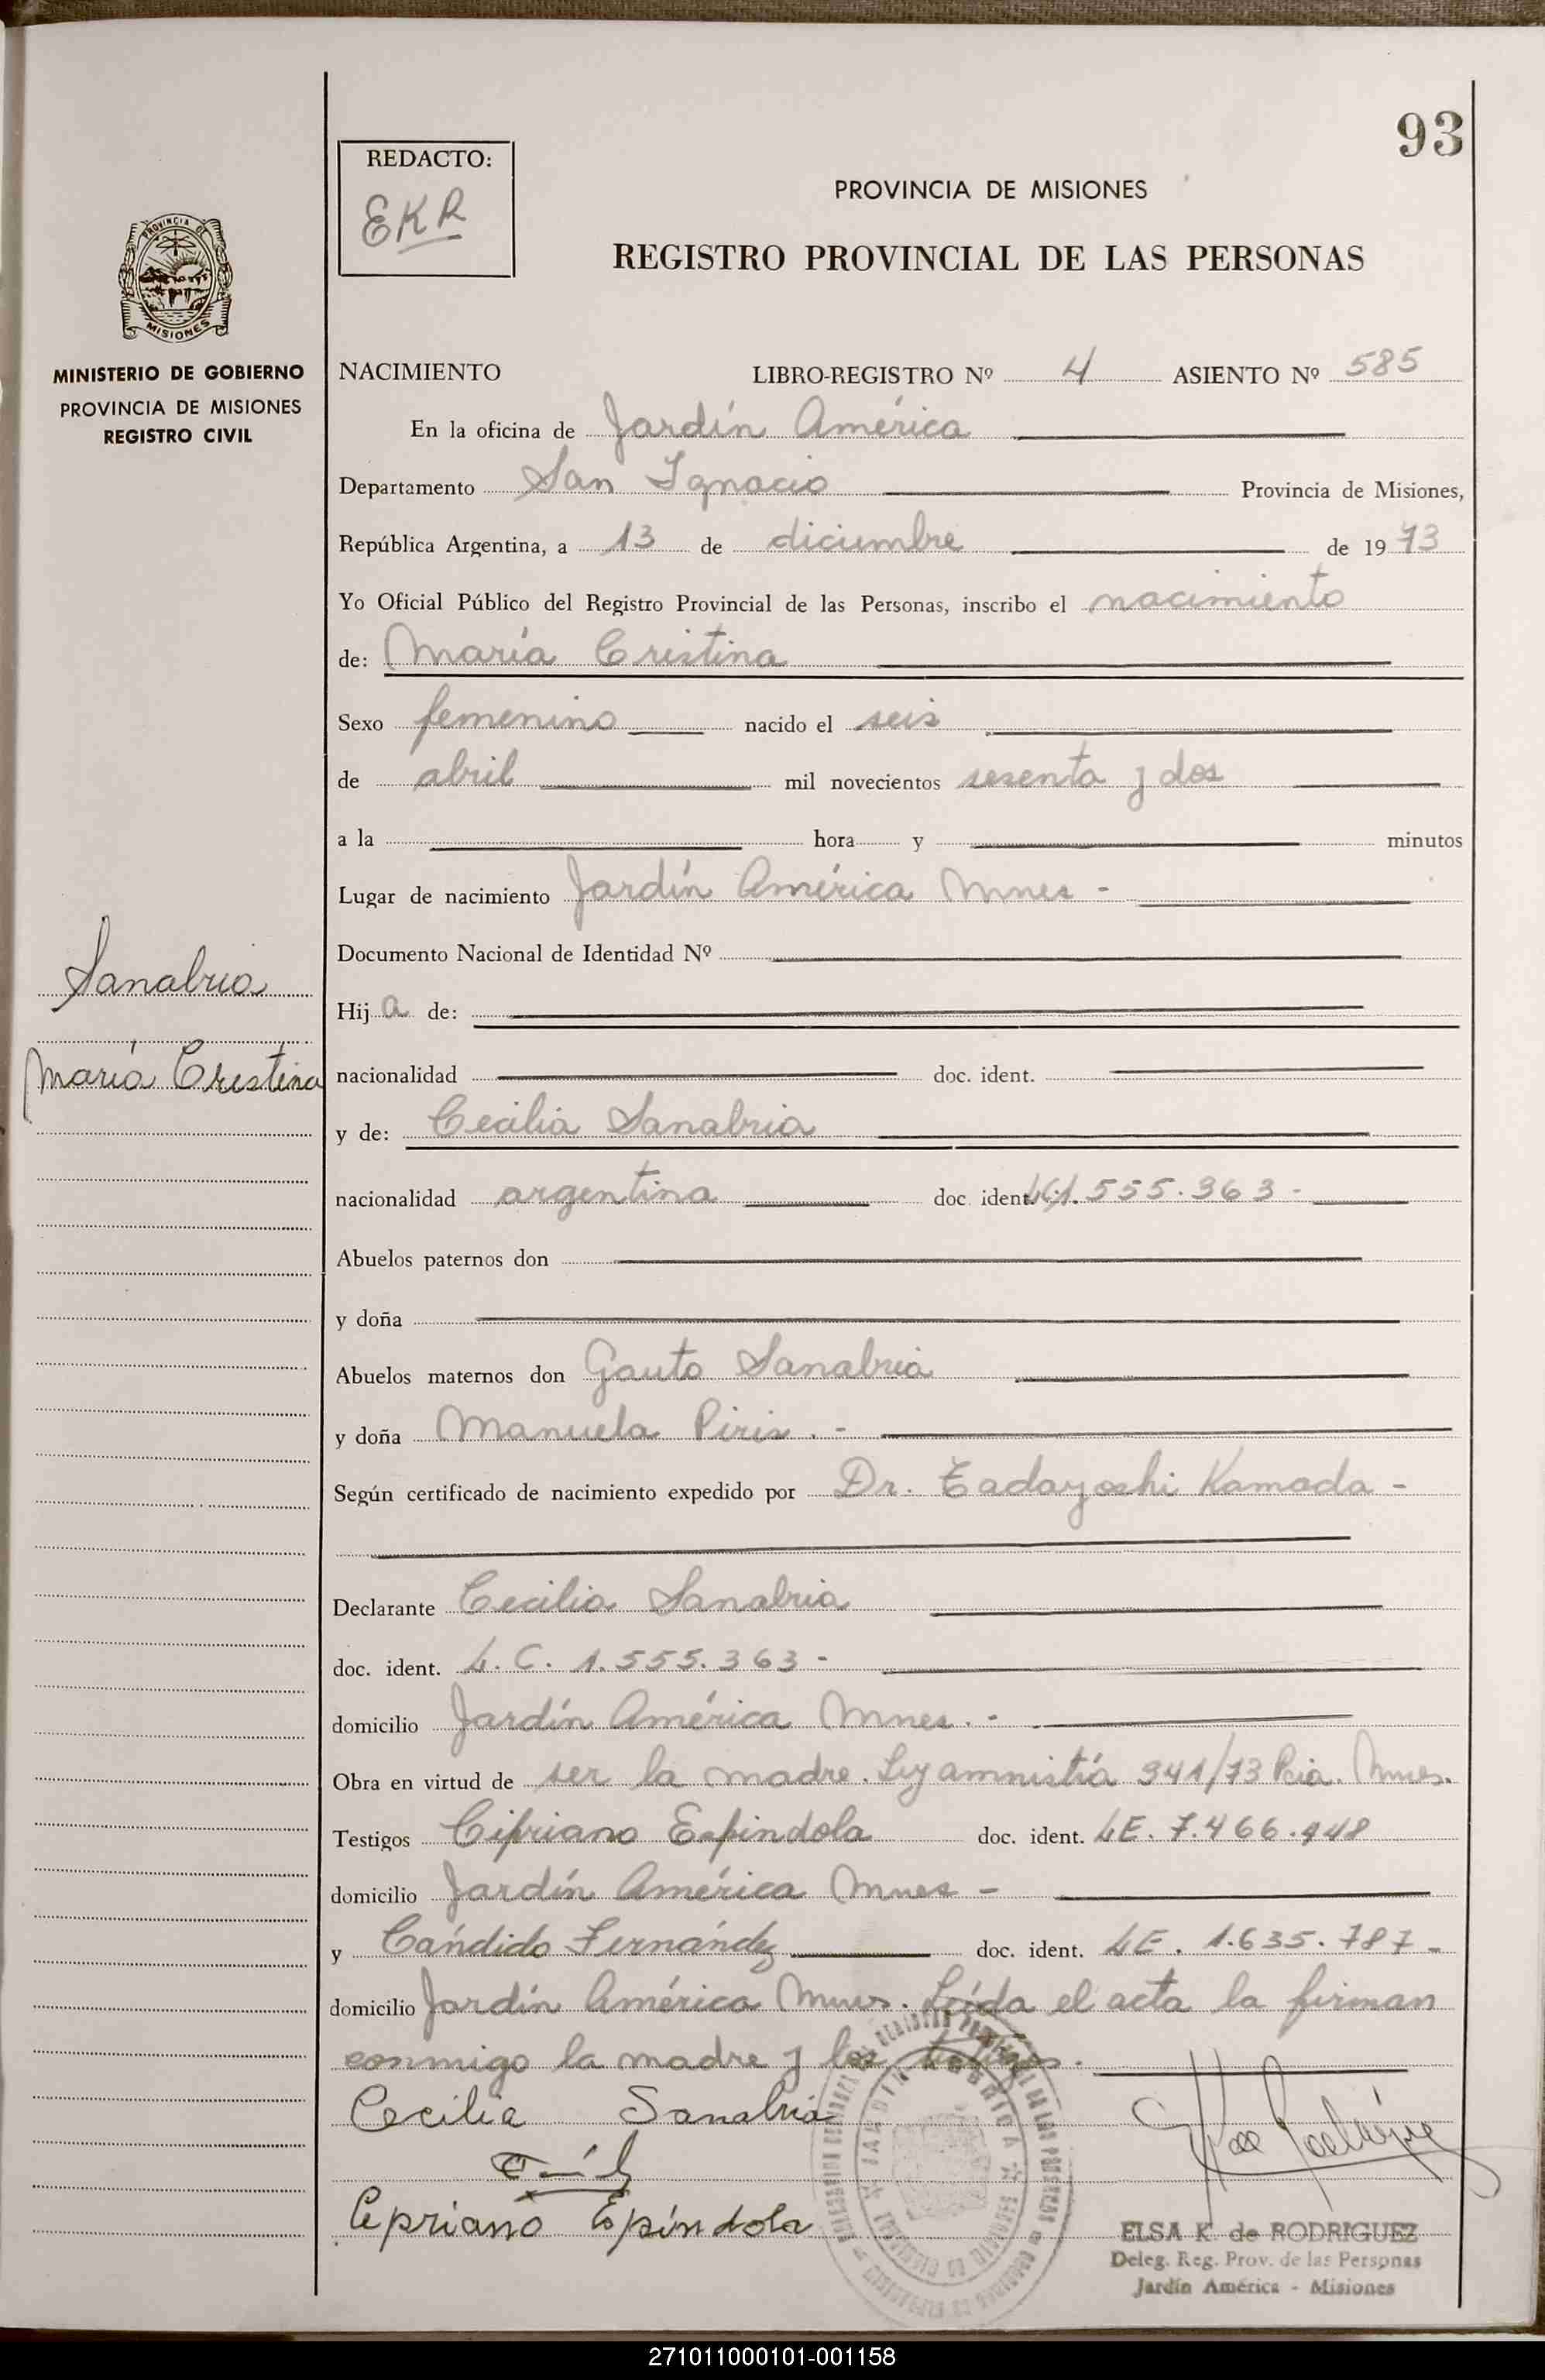 93
REDACTO:
EKR
PROVINCIA DE MISIONES
REGISTRO PROVINCIAL DE LAS PERSONAS
PROVINCIA DE
MISIONES
MINISTERIO DE GOBIERNO
PROVINCIA DE MISIONES
REGISTRO CIVIL
NACIMIENTO LIBRO-REGISTRO Nº 4 ASIENTO Nº 585
En la oficina de Jardín América
Departamento San Ignacio Provincia de Misiones,
República Argentina, a 13 de diciembre de 1973
Yo Oficial Público del Registro Provincial de las Personas, inscribo el nacimiento
de: María Cristina
Sexo femenino nacido el seis
de abril mil novecientos sesenta y dos
a la hora y minutos
Lugar de nacimiento Jardín América Mnes -
Documento Nacional de Identidad Nº
Sanabria
Hija de:
María Cristina
nacionalidad doc. ident.
y de: Cecilia Sanabria
nacionalidad argentina doc. ident. LC 1.555.363 -
Abuelos paternos don
y doña
Abuelos maternos don Gauto Sanabria
y doña Manuela Piris . -
Según certificado de nacimiento expedido por Dr. Tadayoshi Kamada -
Declarante Cecilia Sanabria
doc. ident. L. C. 1.555.363 -
domicilio Jardín América Mnes. -
Obra en virtud de ser la madre. Ley amnistía 341/73 Pcia. Mnes.
Testigos Cipriano Espíndola doc. ident. LE. 7.466.948
domicilio Jardín América Mnes -
y Cándido Fernández doc. ident. LE. 1.635.787 -
domicilio Jardín América Mnes. Leída el acta la firman
conmigo la madre y los testigos.
Cecilia Sanabria
Cipriano Espíndola
ELSA K. de RODRIGUEZ
Deleg. Reg. Prov. de las Personas
Jardín América - Misiones
271011000101-001158